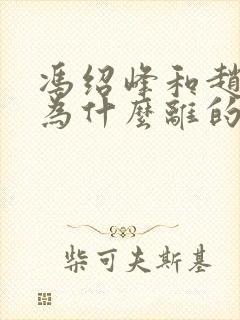 馮绍峰和趙
為什麼離的
柴可夫斯基